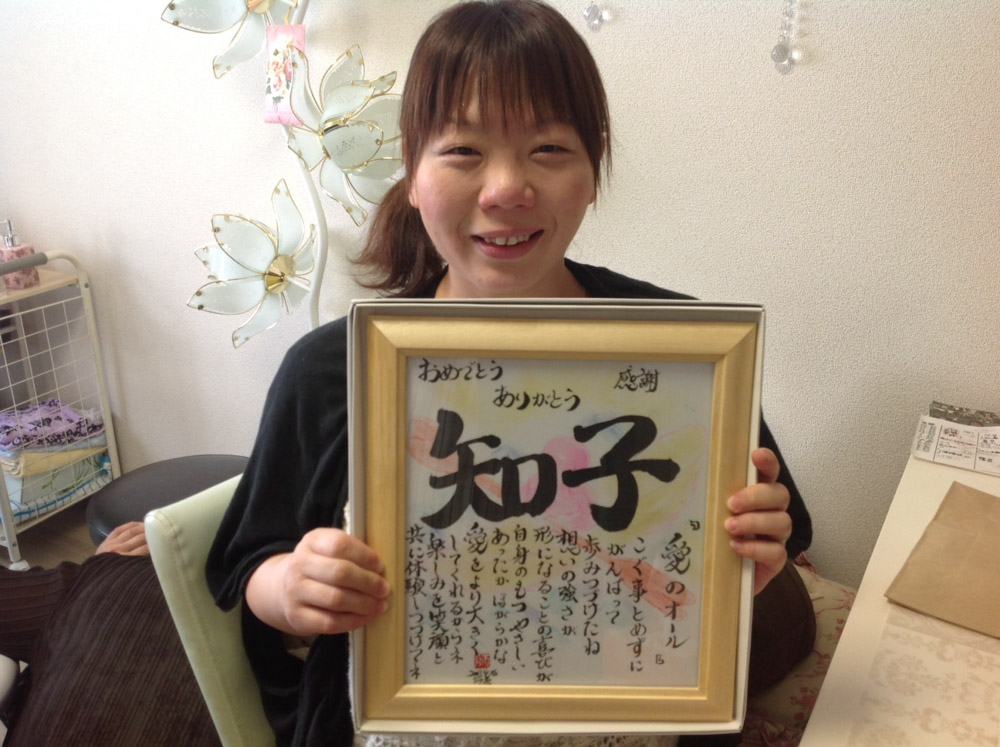 おめでとう
ありがとう
感謝
知子
「愛のオール」
こぐ事とめずに
がんばって
歩みつづけたね
想いの強さが
形になることの喜びが
自身のもつやさしい
あったかほがらかな
愛をより大きく
してくれるからネ
楽しみを笑顔と
共に体験しつづけてネ